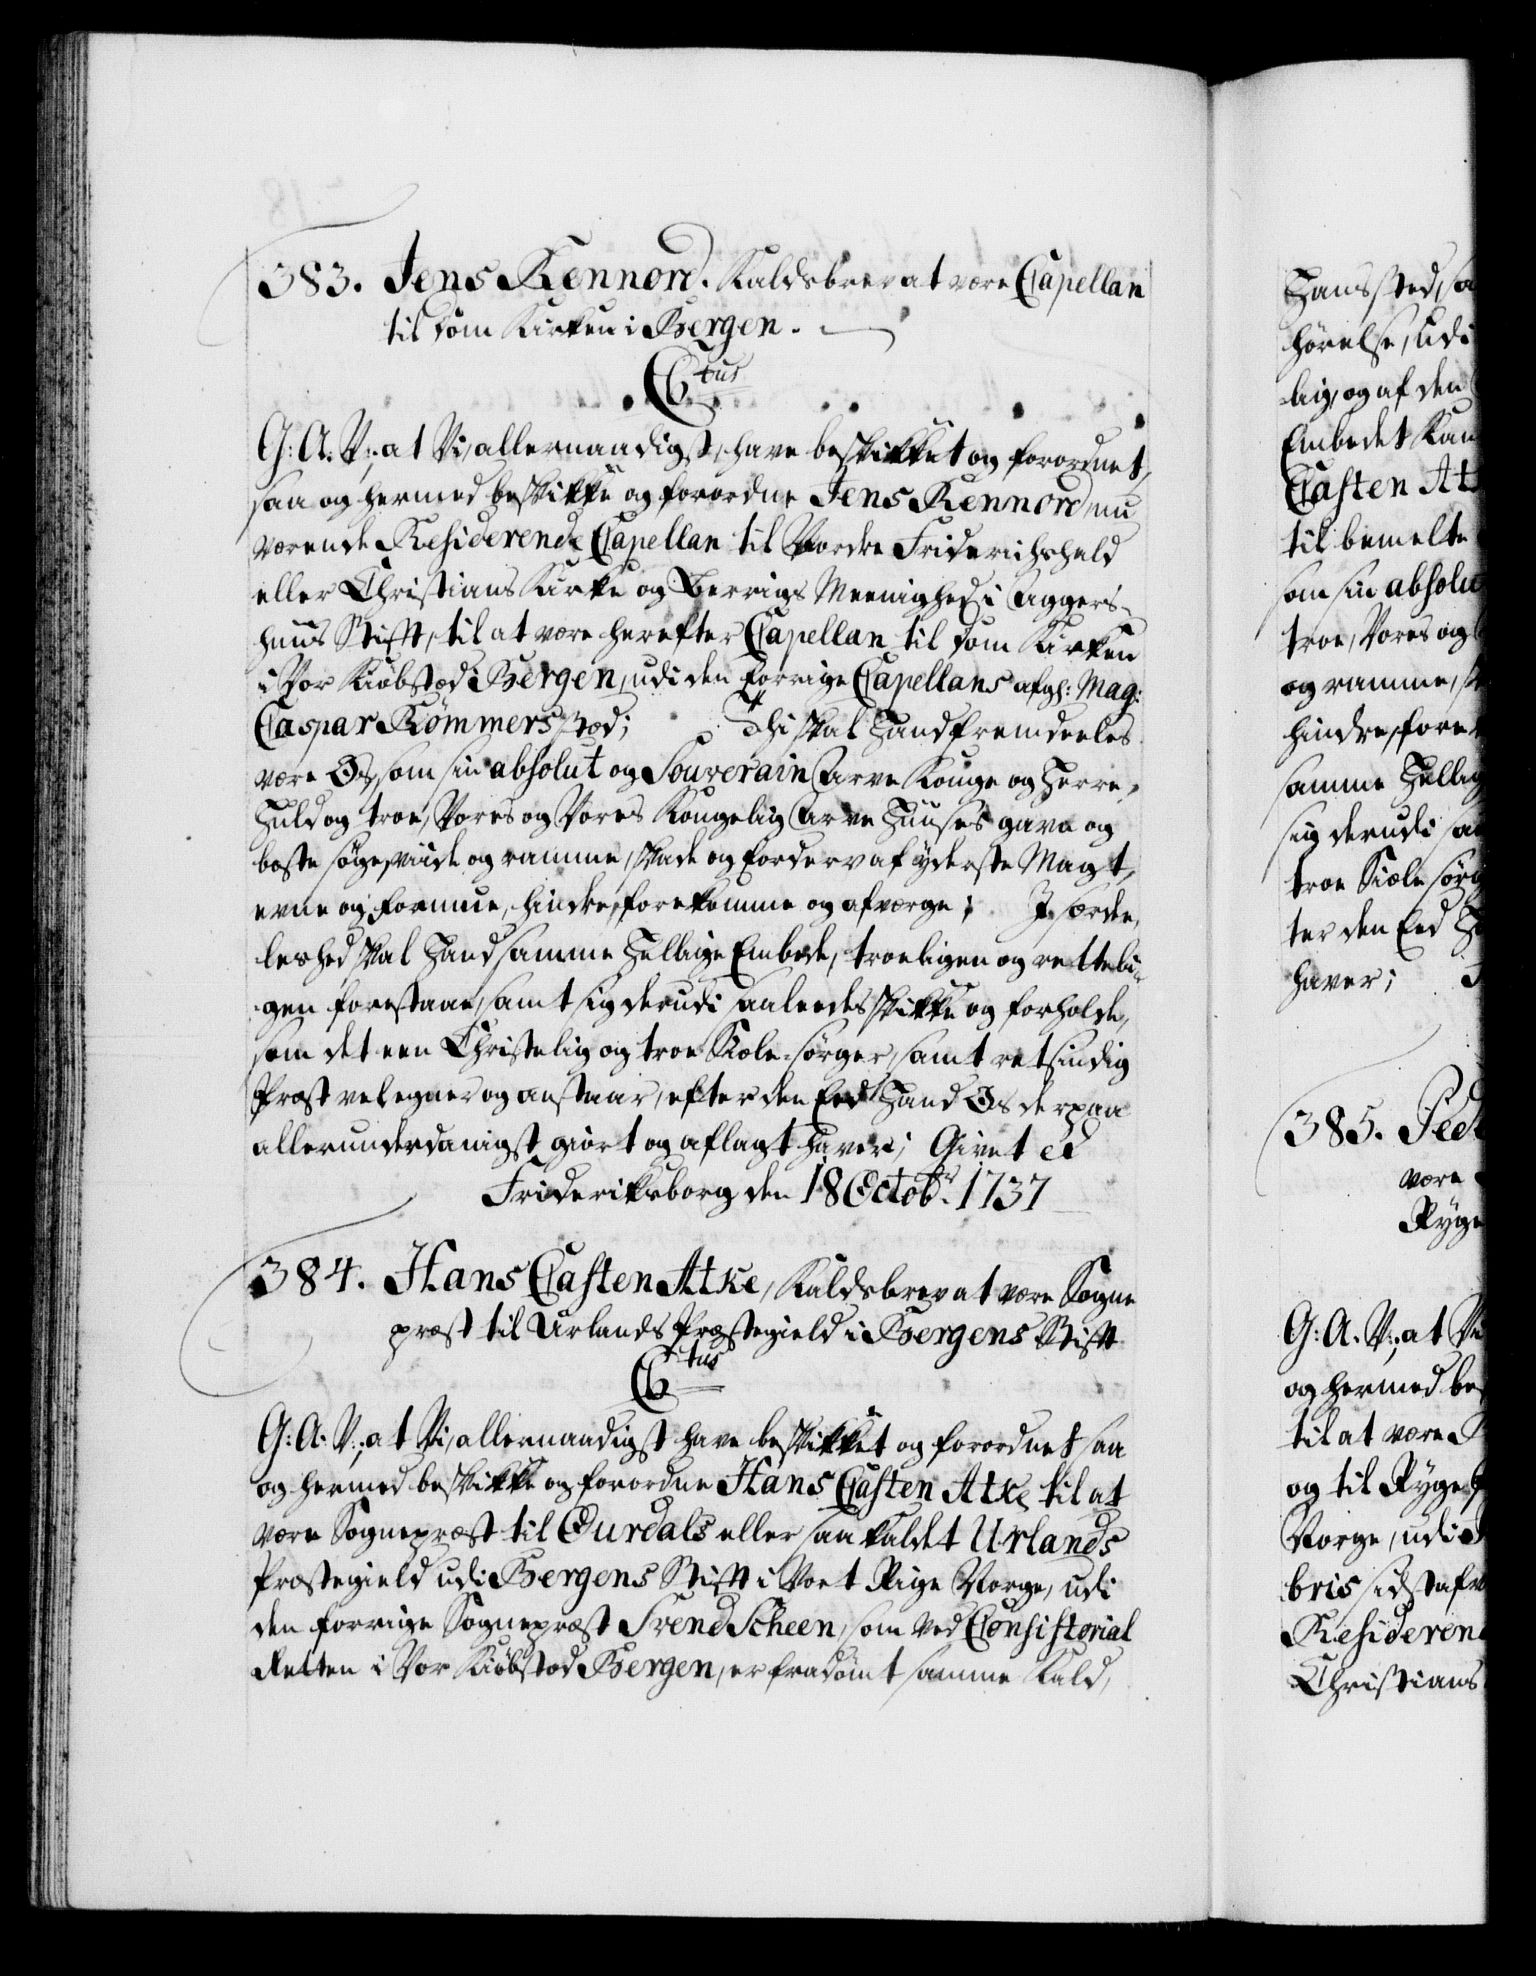 383. Jens Kennord. Kaldsbrev at være Capellan
til Dom Kirken i Bergen.
C6tus
G: A: V:, at Vi, allernaadigst, have beskikket og forordnet,
saa og hermed beskikke og forordne Jens Kennord, nu
værende Residerende Capellan til Vordre Friderichshald
eller Christians Kirke og Berrigs Meenighed i Aggers-
huus Stift, til at være herefter Capellan til Dom Kirken
i Vor Kiøbstæd Bergen, udi den forrige Capellans afgl: Mag:
Caspar Kømmers Stæd; Thi skal Hand fremdeeles
være Os, som sin absolut og Souverain Arve Konge og Herre,
Huld og troe, Vores og Vores Kongelig Arve Huuses gavn og
beste søge, viide og ramme, skade og forderv af yderste Magt,
evne og formue, hindre, forekomme og afværge; I særde,
leshed skal Hand samme Hellige Embede, troeligen og retteli-
gen forestaae, samt sig derudi saaleedes skikke og forholde,
som det een Christelig og troe Siæle-sørger, samt retsindig
Præst vel egner og anstaar, efter den Eed Hand Os derpaa
allerunderdanigst giort og aflagt haver; Givet etc
Frideriksborg den 18 Octobr. 1737
384. Hans Casten Atke, Kaldsbrev at være Sogne
præst til Urlands Præstegield i Bergens Stift
C6tus
G: A: V:, at Vi, allernaadigst have beskikket og forordnet saa
og hermed beskikke og forordne Hans Casten Atke til at
være Sognepræst til Ourdals eller saa kaldet Urlands
Præstegield udi Bergens Stift i Vort Rige Norge, udi
den forrige Sognepræst Svend Scheen, som ved Consistorial
Retten i Vor Kiøbstæd Bergen, er fradømt samme Kald,
Hans sted, sa
hørelse, udi
lig, og af den
Embedet kan
Casten At
til bemelte
som sin absolu
troe, Vores og
og ramme, s
hindre, fore
samme Hellig
sig derudi sa
troe Siæle sørg
ter den Eed Ha
haver;
385. Ped
være
Ryge
G: A. V:, at Vi
og hermed bes
til at være
og til Ryge
Norge, udi
bris sidst afv
Resideren
Christians